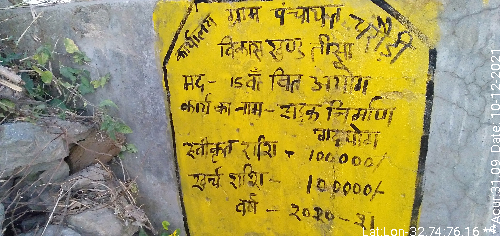 कार्यालय ग्राम पंचायत चरौडी
विकास खण्ड तीसा
मद - 15वें वित आयोग
कार्य का नाम - डाडंक निर्माण
गडफोग
स्वीकृत राशि - 100000/-
खर्च राशि - 100000/-
वर्ष - 2020-21
Lat:Lon-32.74:76.16
Acur:31.09 Date: 10.12.202